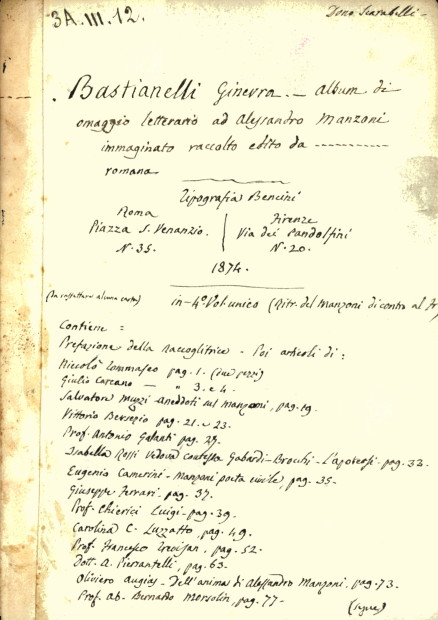 3A.III.12.
Dono Scarabelli -
Bastianelli Ginevra. - Album di
omaggio letterario ad Alessandro Manzoni
immaginato raccolto edito da ----------
romana
Tipografia Bencini
Roma
Piazza S. Venanzio.
N. 35.
Firenze
Via dei Pandolfini
N. 20.
1874.
in-4° Vol. unico (Ritr. del Manzoni di contro al fr
Contiene =
Prefazione della Raccoglitrice - Poi articoli di :
Niccolò Tommaseo pag. 1. (due pezzi)
Giulio Carcano - " 3. e 4.
Salvatore Muzzi - aneddoti sul Manzoni, pag. 19.
Vittorio Bersezio pag. 21. - 23.
Prof. Antonio Galanti pag. 27.
Isabella Rossi vedova contessa Gabardi-Brocchi - pag. 33.
Eugenio Camerini - Manzoni poeta civile, pag. 35.
Giuseppe Ferrari - pag. 37.
Prof. Chierici Luigi - pag. 39.
Carolina C. Luzzatto, pag. 49.
Prof. Francesco Trevisan, pag. 52.
Dott. A. Pierantelli, pag. 63.
Oliviero Augias - Dell'anima di Alessandro Manzoni, pag. 73.
Prof. ab. Bernardo Morsolin, pag. 77 -
(segue)